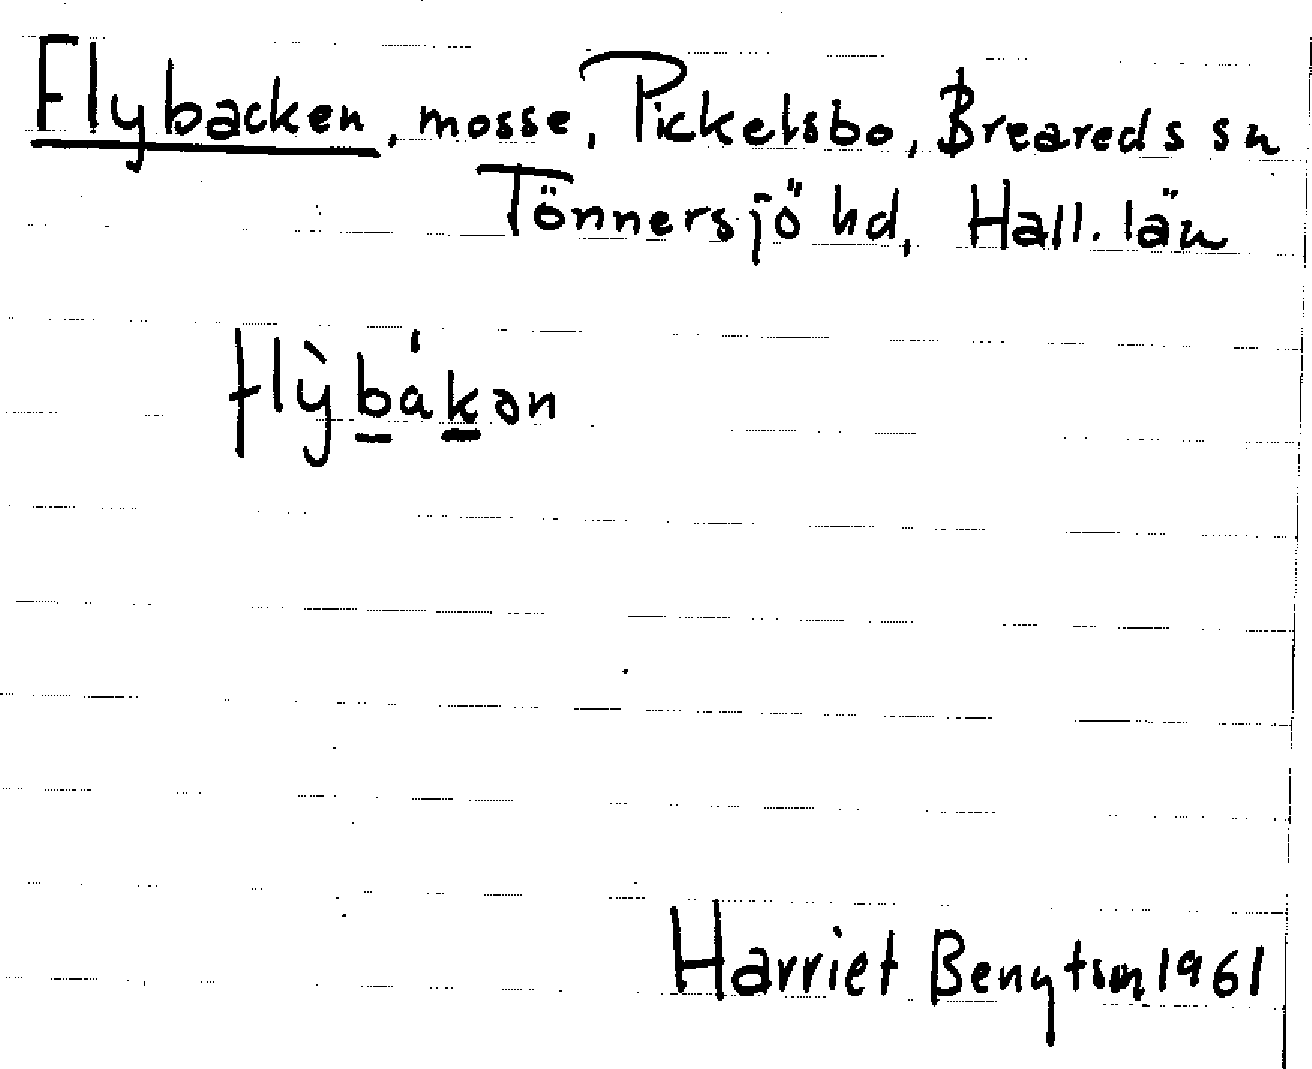 Flybacken, mosse, Pickelsbo, Breareds sn
Tönnersjö hd, Hall. län
flỳbákən
Harriet Bengtson 1961